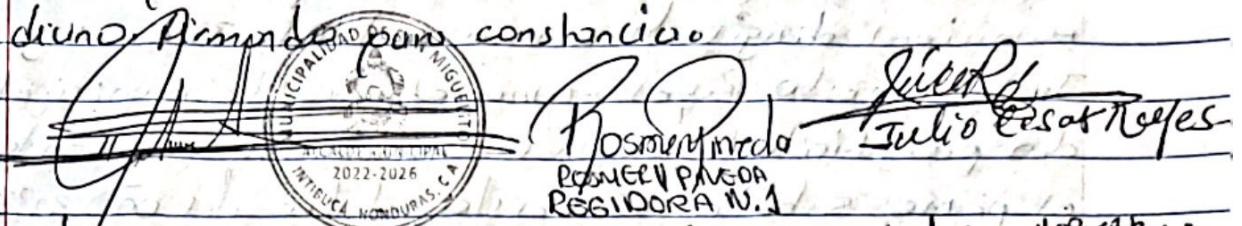 diurno firmando para constancia.
MUNICIPALIDAD DE SAN MIGUELITO
ALCALDE MUNICIPAL
2022-2026
INTIBUCA, HONDURAS, C.A.
Rosmery Pineda
ROSMERY PINEDA
REGIDORA N.1
Julio Cesar Reyes